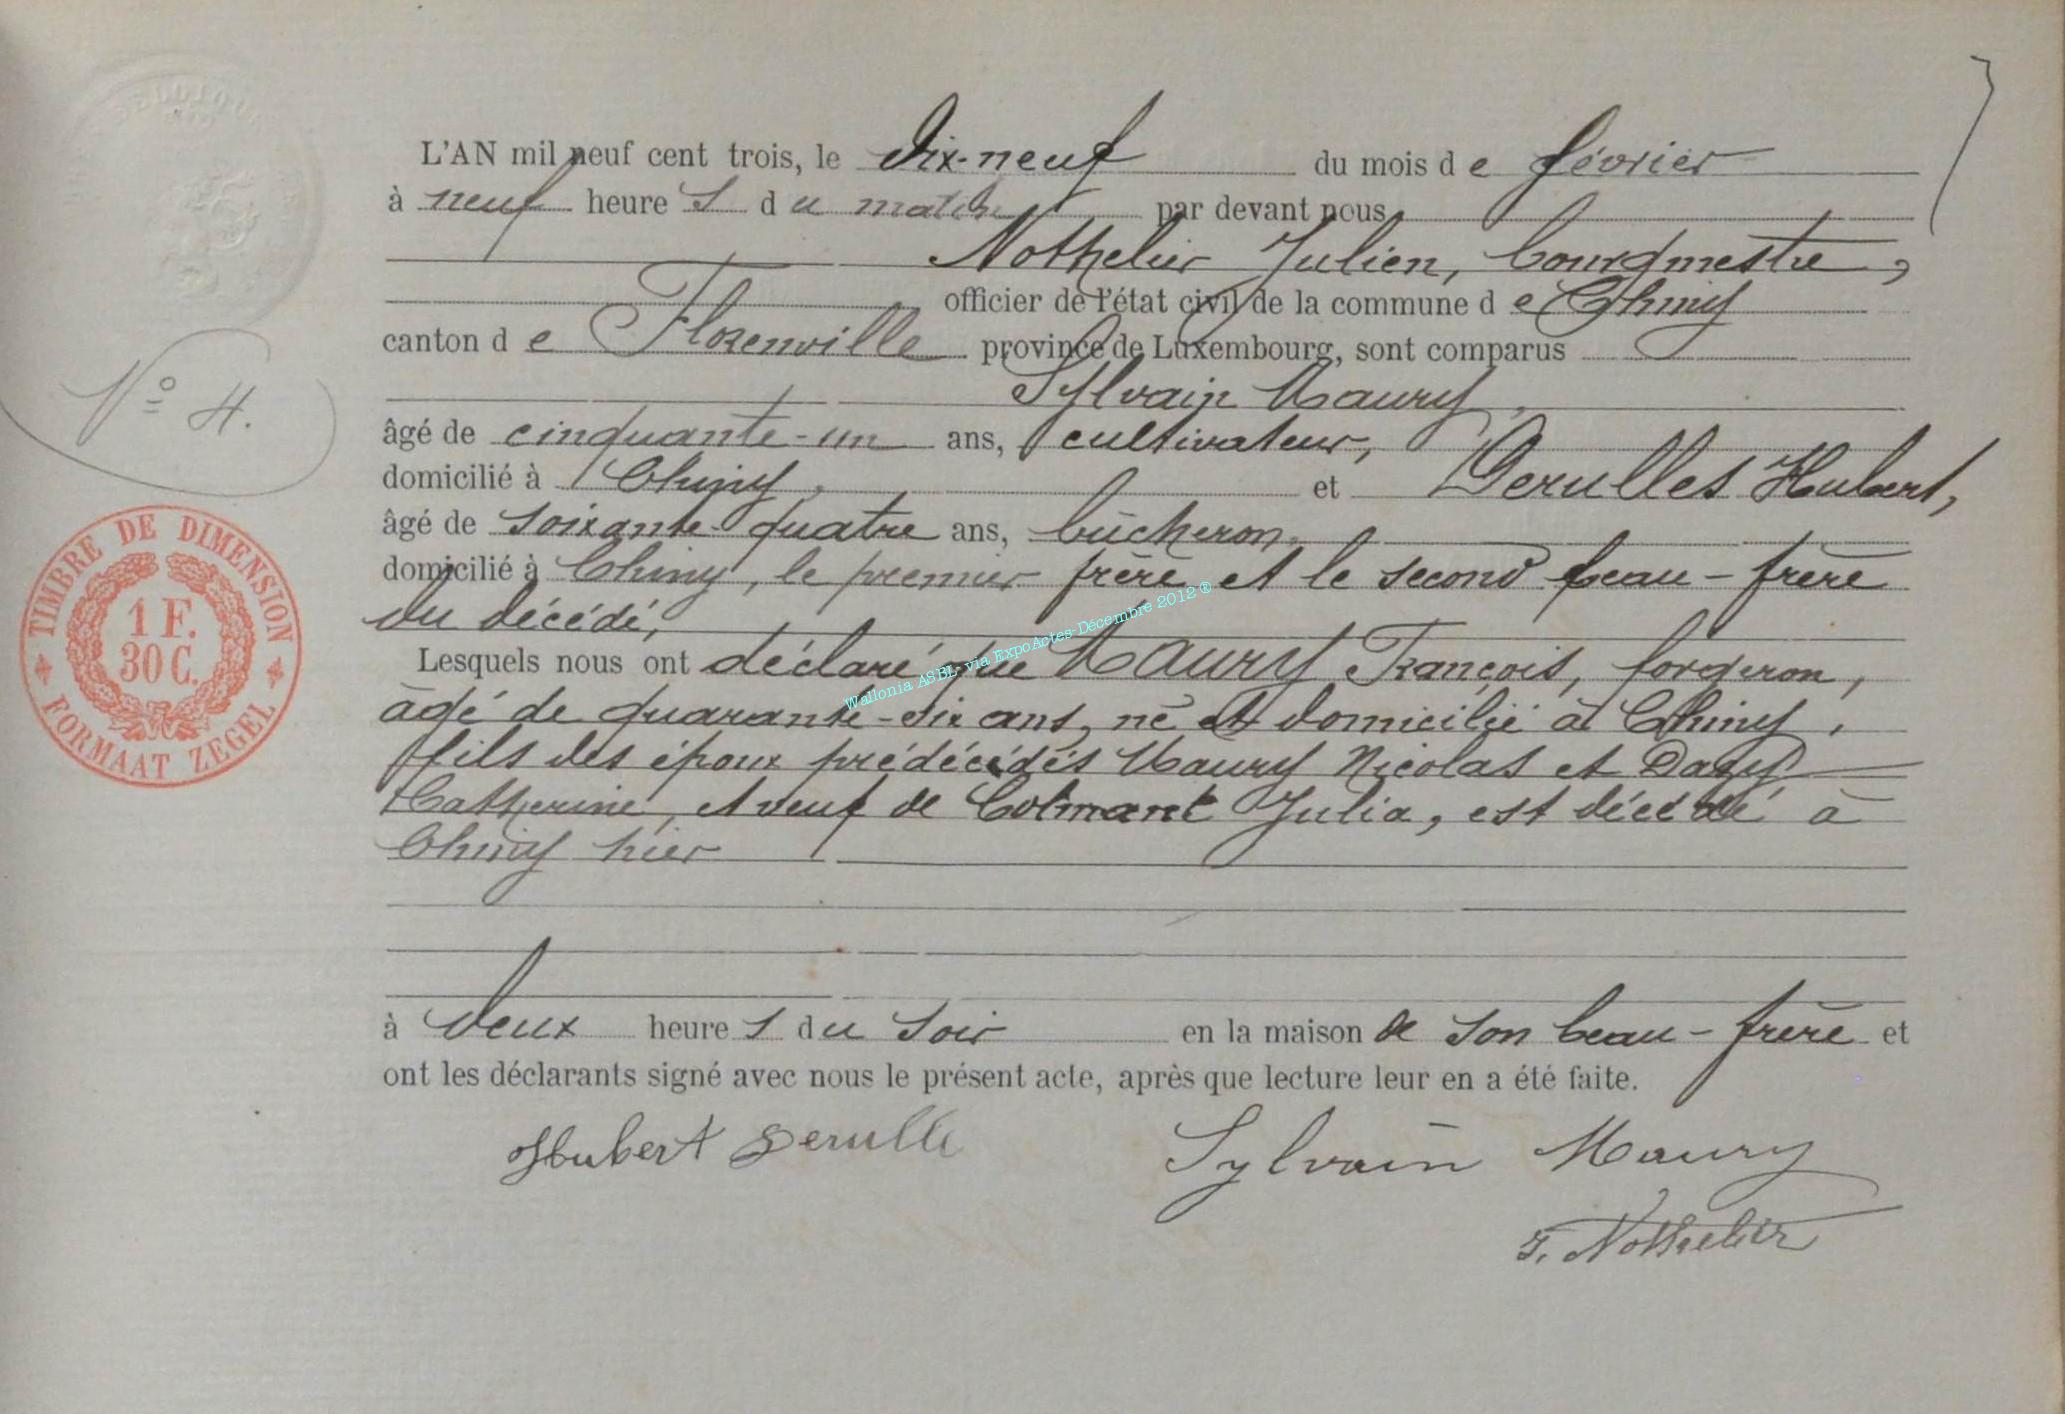 L'AN mil neuf cent trois, le dix-neuf du mois de février
à neuf heures du matin par devant nous
Nothelier Julien, bourgmestre,
officier de l'état civil de la commune de Chiny
canton de Florenville province de Luxembourg, sont comparus
Sylvain Maury,
âgé de cinquante-un ans, cultivateur,
domicilié à Chiny, et Gerulles Hubert,
âgé de soixante-quatre ans, bûcheron,
domicilié à Chiny, le premier frère et le second beau-frère
du décédé,
Lesquels nous ont déclaré que Maury François, forgeron,
âgé de quarante-six ans, né et domicilié à Chiny,
fils des époux prédécédés Maury Nicolas et
Catherine, et veuf de Colmant Julia, est décédé à
Chiny hier
à deux heures du soir en la maison de son beau-frère et
ont les déclarants signé avec nous le présent acte, après que lecture leur en a été faite.
Hubert Gerulle Sylvain Maury
J. Nothelier
N° 4.
TIMBRE DE DIMENSION
1 F.
30 C.
FORMAAT ZEGEL
BELGIQUE
Wallonia ASBL-via ExpoActes-Décembre 2012 ®